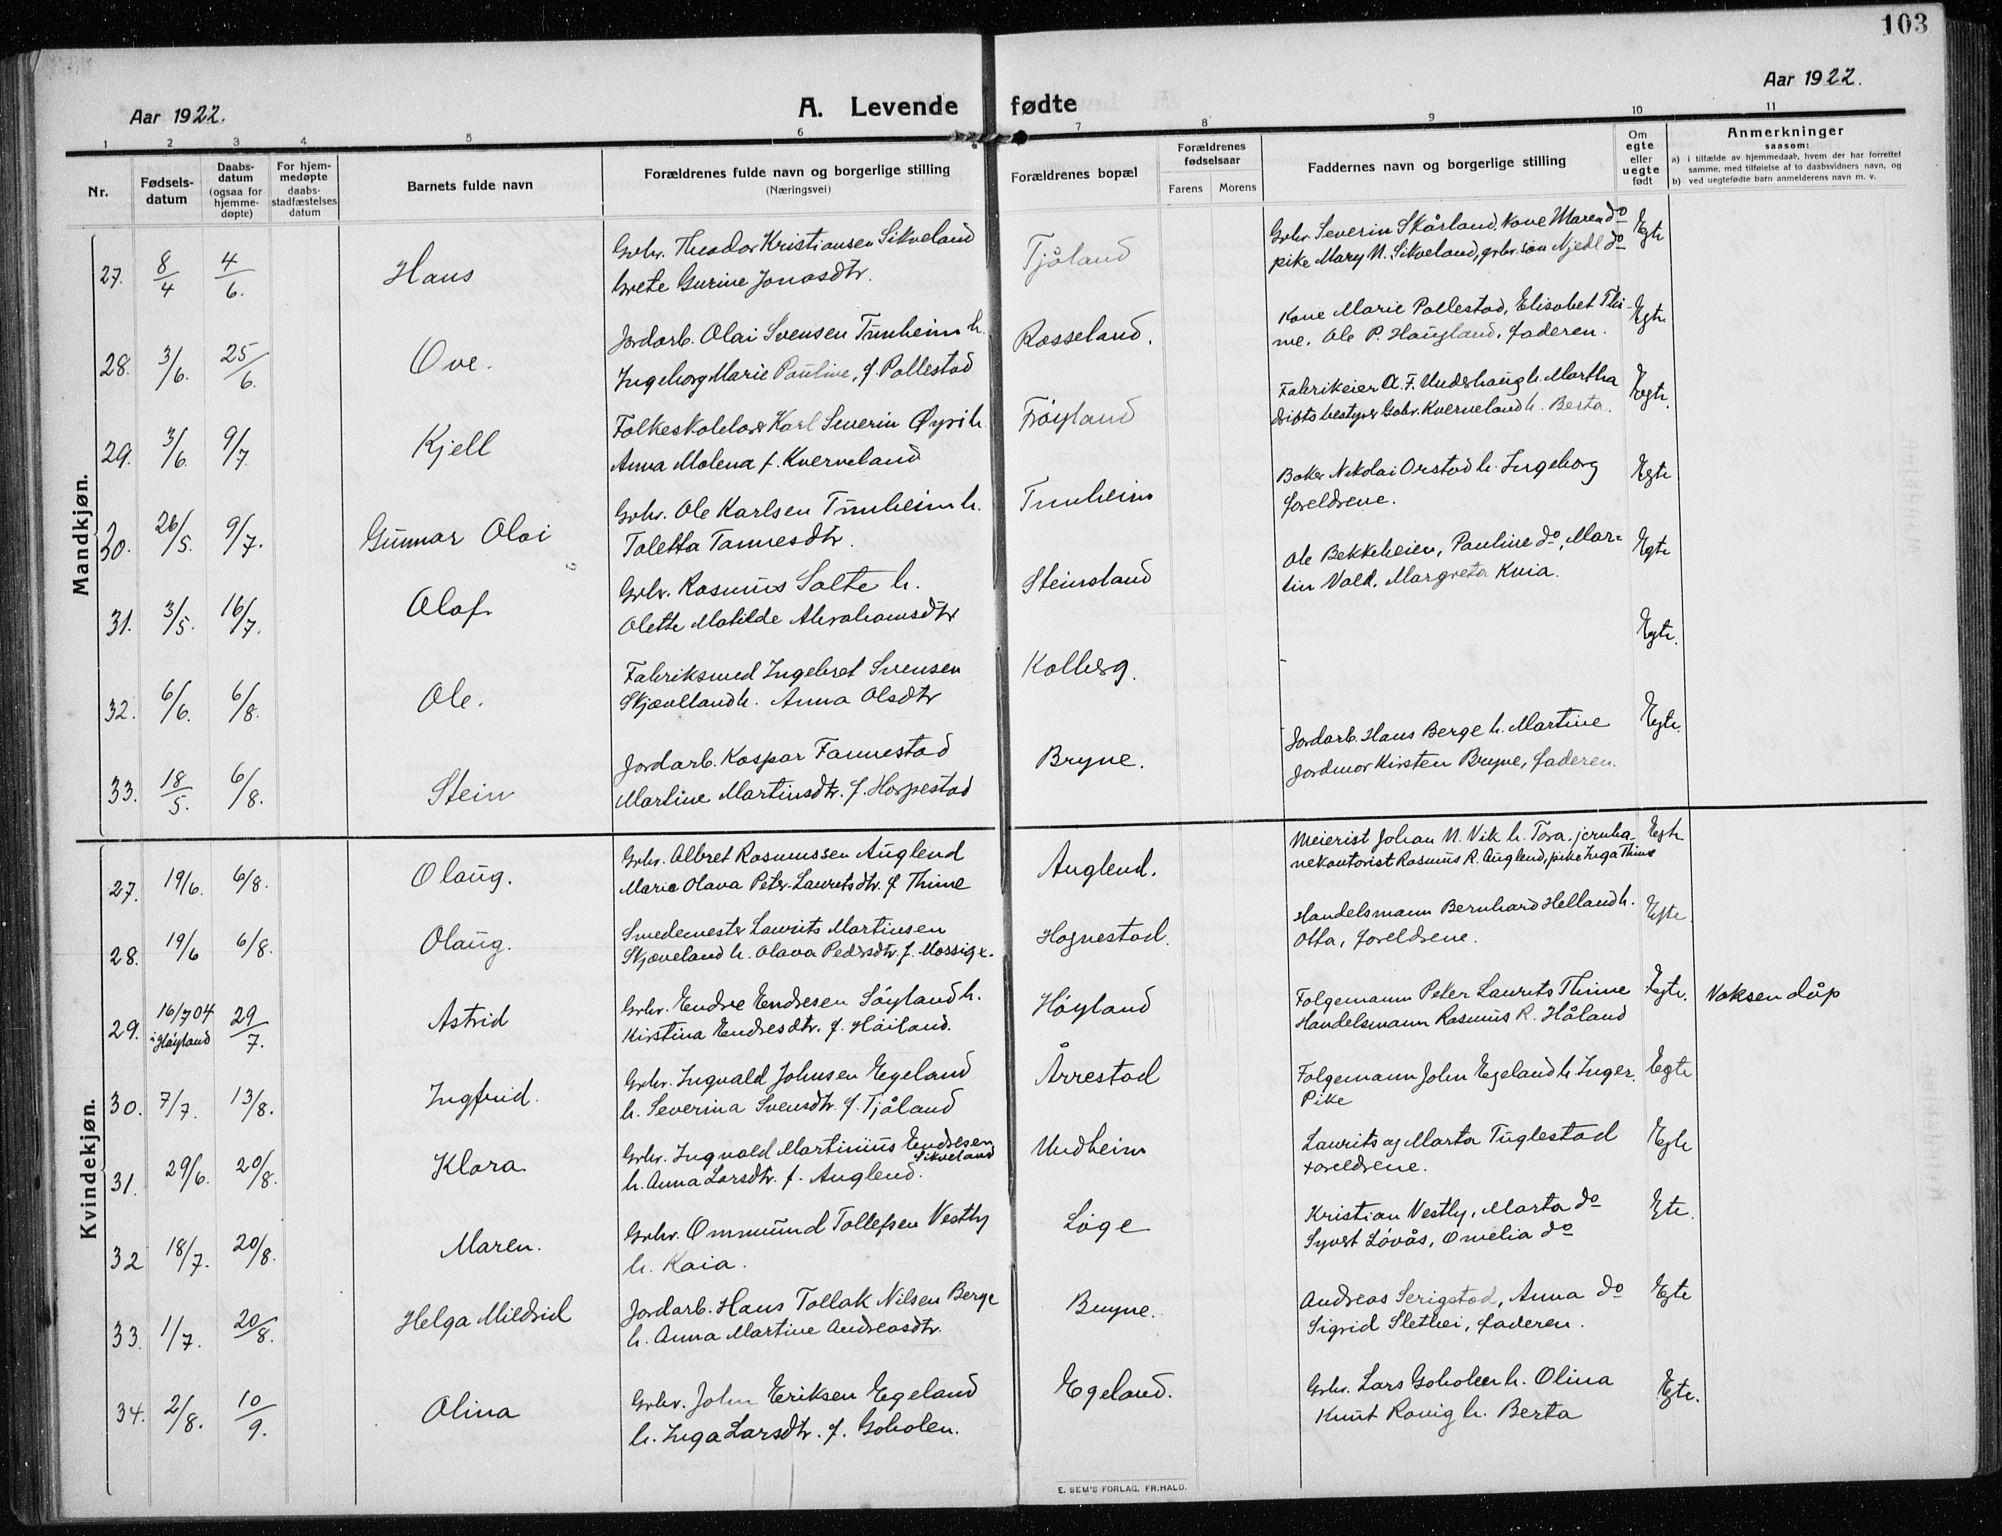 103
Aar 1922.
A. Levende fødte
Aar 1922.
1 2 3 4 5 6 7 8 9 10 11
Nr.
Fødsels-
datum
Daabs-
datum
(ogsaa for
hjemme-
døpte)
For hjem-
medøpte
daabs-
stadfæstelses
datum
Barnets fulde navn
Forældrenes fulde navn og borgerlige stilling
(Næringsvei)
Forældrenes bopæl
Forældrenes
fødselsaar
Farens Morens
Faddernes navn og borgerlige stilling
Om
egte
eller
uegte
født
Anmerkninger
saasom:
a) i tilfælde av hjemmedaab, hvem der har forrettet
samme, med tilføielse af to daabsvidners navn, og
b) ved uegtefødte barn anmelderens navn m. v.
Mandkjøn.
27. 8/4 4/6. Hans
Grbr. Theodor Kristiansen Sikveland
Grete Gurine Jonasdtr.
Tjåland
Grbr. Severin Skårland, Kone Maren do
pike Mary N. Sikveland, grbr. søn Njedl do
Egte
28. 3/6. 25/6. Ove.
Jordarb. Olai Svensen Tunheim h.
Ingeborg Marie Pauline, f. Pollestad
Rosseland.
Kone Marie Pollestad, Elisabet Thi-
me, Ole P. Haugland, faderen.
Egte
29. 3/6. 9/7. Kjell
Folkeskolelær Karl Severin Øyri h.
Anna Malena f. Kverneland
Frøyland
Fabrikeier O. F. Undshaug h. Martha
driftsbestyrer Gabr. Kverneland h. Berta.
Egte.
30. 26/5. 9/7. Gunnar Olai
Grbr. Ole Karlsen Tunheim h.
Taletta Tannesdtr.
Tunheim
Baker Nikolai Orstad h. Ingeborg
foreldrene.
Egte
31. 3/5. 16/7. Olaf.
Grbr. Rasmus Salte h.
Olette Matilde Abrahamsdtr
Steinsland
Ole Bekkeheien, Pauline do, Mar-
tin Vold, Margreta Kvia.
Egte
32. 6/6. 6/8. Ole.
Fabriksmed Ingebret Svensen
Skjævlland h. Anna Olsdtr
Kalberg.
Egte.
33. 18/5. 6/8. Stein
Jordarb. Kaspar Fannestad
Martine Martinsdtr. f. Horpestad
Bryne.
Jordarb. Hans Berge h. Martine
Jordmor Kirsten Bryne, faderen.
Egte.
Kvindekjøn.
27. 19/6. 6/8. Olaug.
Grbr. Albret Rasmussen Auglend
Marie Olava Peter-Lauritsdtr. f Thime
Auglend.
Meierist Johan N. Vik h. Tora, jernba-
nekontorist Rasmus R. Auglend, pike Inga Thime
Egte
28. 19/6 6/8. Olaug.
Smedemester Laurits Martinsen
Skjæveland h. Olava Pedersdtr. f. Mossige.
Hognestad.
Handelsmann Bernhard Helland h.
Otta, foreldrene.
Egte.
29. 16/7 04
i Høyland
29/7. Astrid
Grbr. Endre Endresen Søyland h.
Kirstina Endresdtr. f. Håiland.
Høyland
Folgemann Peter Laurits Thime
Handelsmann Rasmus R. Håland
Egte.
Voksen dåp
30. 7/7. 13/8. Ingfrid.
Grbr. Ingvald Johnsen Egeland
h. Severina Svensdtr. f. Tjåland
Årrestad
Folgemann John Egeland h. Inger.
Pike
Egte
31. 29/6. 20/8. Klara
Grbr. Ingvald Martinius Endresen
Sikveland
h. Anna Larsdtr. f. Auglend.
Undheim
Laurits og Marta Tuglestad
foreldrene.
Egte
32 18/7. 20/8. Maren.
Grbr. Ommund Tollefsen Vestly
h. Kaia.
Løge
Kristian Vestly, Marta do
Syvert Løvås, Omelia do
Ete.
33. 1/7. 20/8. Helga Mildrid
Jordarb. Hans Tollak Nilsen Berge
h. Anna Martine Andreasdtr.
Bryne.
Andreas Serigstad, Anna do
Sigrid Slethei, faderen.
Egte
34. 2/8. 10/9. Olina
Grbr. John Eriksen Egeland
h. Inga Larsdtr. f. Goholen.
Egeland.
Grbr. Lars Goholen h. Olina
Knut Ravig h. Berta
Egte.
E. SEM'S FORLAG, FR.HALD.